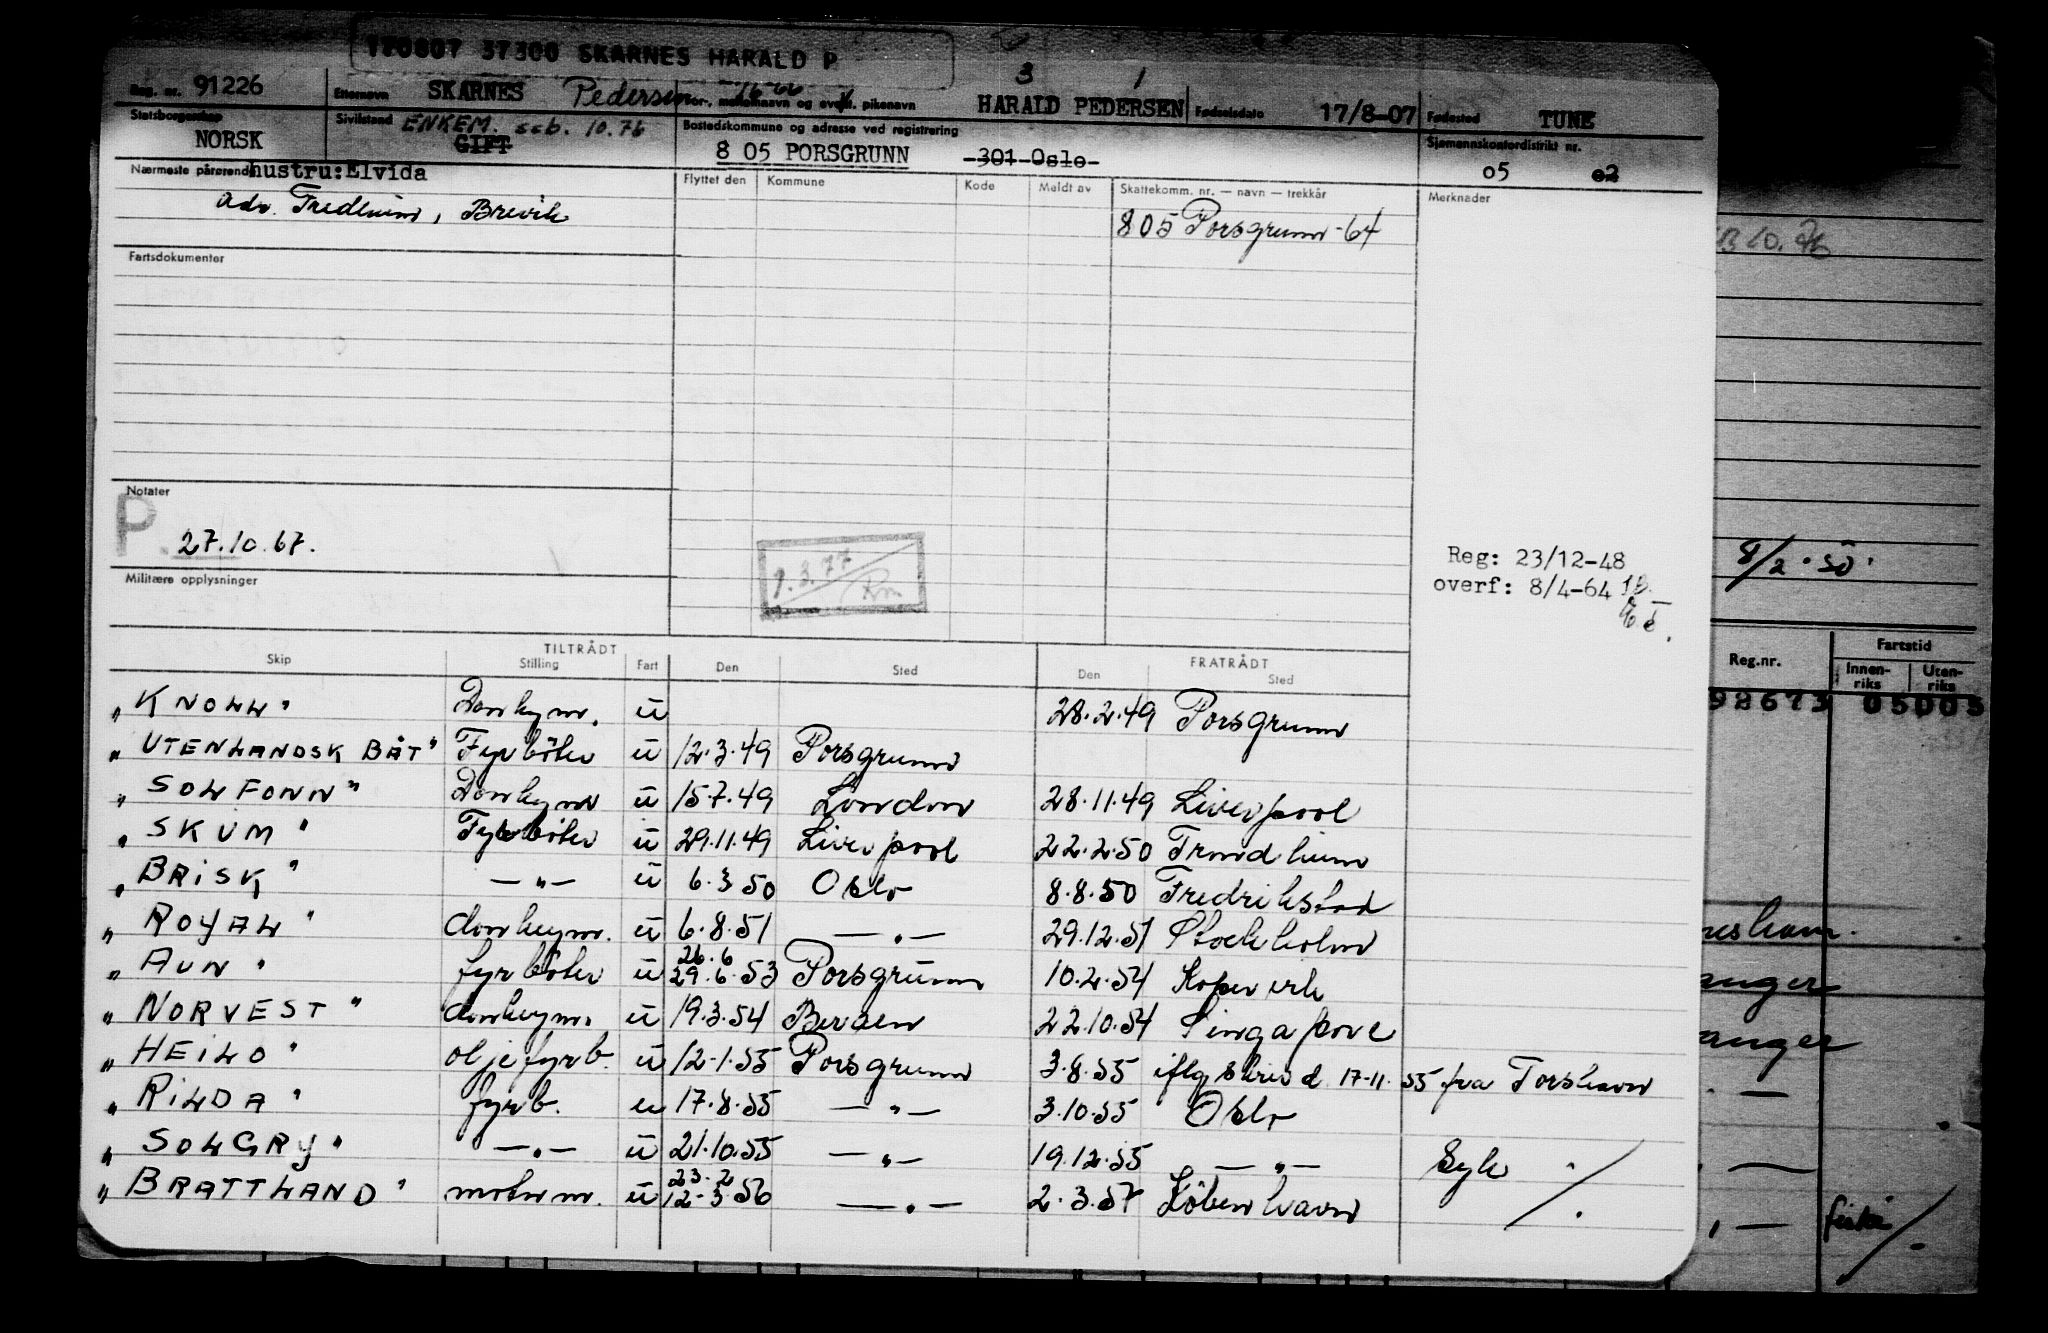 170807 37300 SKARNES HARALD P
3 1
Reg. nr. 91226 Etternavn SKARNES Pedersen For-, mellomnavn og event. pikenavn HARALD PEDERSEN Fødselsdato 17/8-07 Fødested TUNE
Statsborgerskap NORSK Sivilstand ENKEM. seb. 10.76 GIFT Bostedskommune og adresse ved registrering 8 05 PORSGRUNN -301-Oslo- Sjømannskontordistrikt nr. 05 02
Nærmeste pårørende hustru:Elvida Flyttet den Kommune Kode Meldt av Skattekomm. nr. — navn — trekkår Merknader
Adr. Fredlund, Brevik 805 Porsgrunn -64
B 10.76
Fartsdokumenter
Notater
P. 27.10.67.
9.3.77
Reg: 23/12-48
overf: 8/4-64
8/2-50.
Militære opplysninger
TILTRÅDT FRATRÅDT
Skip Stilling Fart Den Sted Den Sted
Reg.nr. Fartstid Innenriks Utenriks
92673 05005
"KNOLL" Donkeym. u 28.2.49 Porsgrunn
"UTENLANDSK BÅT" Fyrbøter u 12.3.49 Porsgrunn
"SOLFONN" Donkeym u 15.7.49 London 28.11.49 Liverpool
"SKUM" Fyrbøter u 29.11.49 Liverpool 22.2.50 Trondheim
"BRISK" —"— u 6.3 50 Oslo 8.8.50 Fredrikstad
"ROYAL" donkeym. u 6.8.51 —"— 29.12.51 Stockholm
"AUN" fyrbøter u 26.6 29.6.53 Porsgrunn 10.2.54 Kopervik
"NORVEST" donkeym. u 19.3.54 Bergen 22.10.54 Singapore
"HEILO" oljefyrb. u 12-1.55 Porsgrunn 3.8.55 iflg skriv d. 17-11.55 fra Torshavn
"RILDA" fyrb. u 17.8.55 —"— 3.10.55 Oslo
"SOLGRY" —"— u 21.10.55 —"— 19.12.55 —"— Syk ./.
"BRATTLAND" motorm. u 23.2 12-3.56 —"— 2.3.57 København